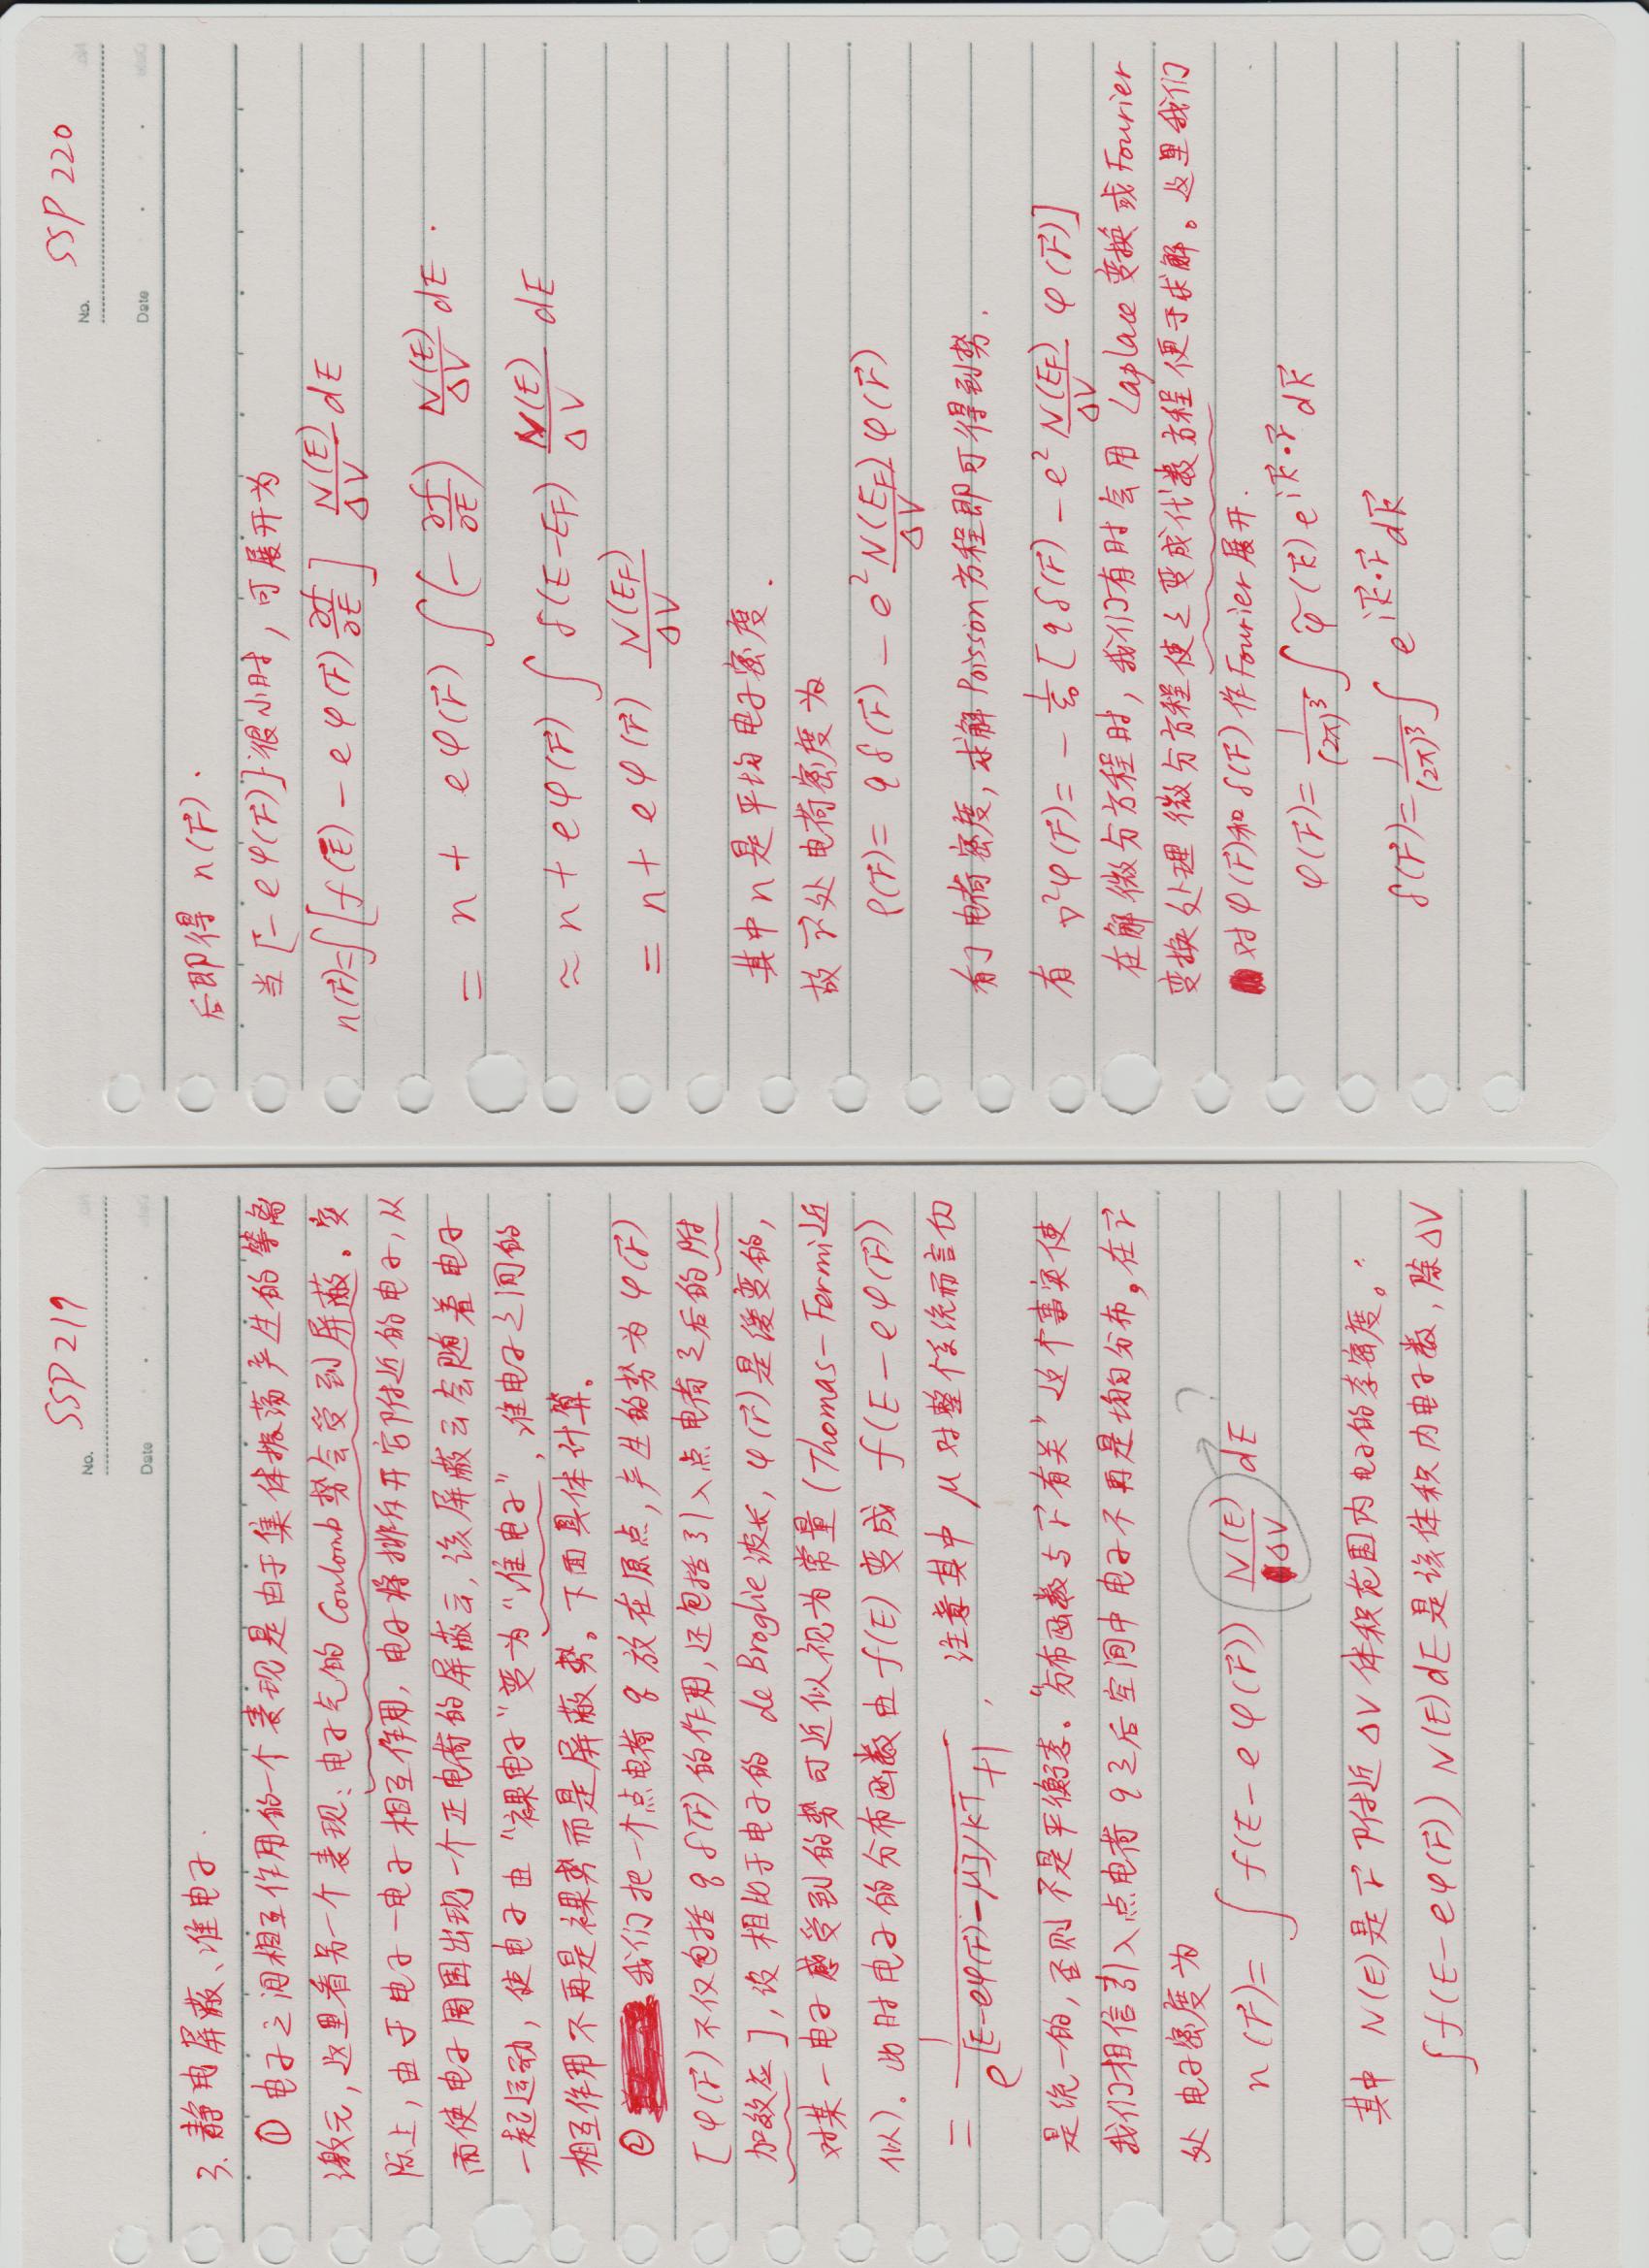 No. SSP 219
Date
3. 静电屏蔽、准电子.
① 电子之间相互作用的一个表现是由于集体振荡产生的等离
激元, 这里看另一个表现: 电子气的 Coulomb 势会受到屏蔽。实
际上, 由于电子-电子相互作用, 电子将排斥开它附近的电子, 从
而使电子周围出现一个正电荷的屏蔽云, 该屏蔽云会随着电子
一起运动, 使电子由 “裸电子” 变为 “准电子”, 准电子之间的
相互作用不再是裸势而是屏蔽势。下面具体计算。
② 我们把一个点电荷 q 放在原点, 产生的势为 φ(r⃗)
[φ(r⃗) 不仅包括 q δ(r⃗) 的作用, 还包括引入点电荷之后的附
加效应], 设相比于电子的 de Broglie 波长, φ(r⃗) 是缓变的,
对某一电子感受到的势可近似视为常量 (Thomas-Fermi 近
似). 此时电子的分布函数由 f(E) 变成 f(E - eφ(r⃗))
= 1/(e^{[E-eφ(r⃗)-μ]/kT} + 1), 注意其中 μ 对整个系统而言仍
是统一的, 否则不是平衡态。“分布函数与 r⃗ 有关” 这个事实使
我们相信引入点电荷 q 之后空间中电子不再是均匀分布。在 r⃗
处电子密度为
n(r⃗) = ∫ f(E - eφ(r⃗)) N(E)/ΔV dE → ?
其中 N(E) 是 r⃗ 附近 ΔV 体积范围内电子的态密度。∵
∫ f(E - eφ(r⃗)) N(E) dE 是该体积内电子数, 除 ΔV
No. SSP 220
Date
后即得 n(r⃗).
当 [- eφ(r⃗)] 很小时, 可展开为
n(r⃗) = ∫ [f(E) - eφ(r⃗) ∂f/∂E] N(E)/ΔV dE
= n + eφ(r⃗) ∫ (- ∂f/∂E) N(E)/ΔV dE.
≈ n + eφ(r⃗) ∫ δ(E-E_F) N(E)/ΔV dE
= n + eφ(r⃗) N(E_F)/ΔV
其中 n 是平均电子密度.
故 r⃗ 处电荷密度为
ρ(r⃗) = q δ(r⃗) - e² N(E_F)/ΔV φ(r⃗)
有了电荷密度, 求解 Poisson 方程即可得到势.
有 ∇²φ(r⃗) = - 1/ε₀ [q δ(r⃗) - e² N(E_F)/ΔV φ(r⃗)]
在解微分方程时, 我们有时会用 Laplace 变换或 Fourier
变换处理微分方程使之变成代数方程便于求解。这里我们
对 φ(r⃗) 和 δ(r⃗) 作 Fourier 展开.
φ(r⃗) = 1/(2π)³ ∫ φ̃(k⃗) e^{ik⃗·r⃗} dk⃗
δ(r⃗) = 1/(2π)³ ∫ e^{ik⃗·r⃗} dk⃗